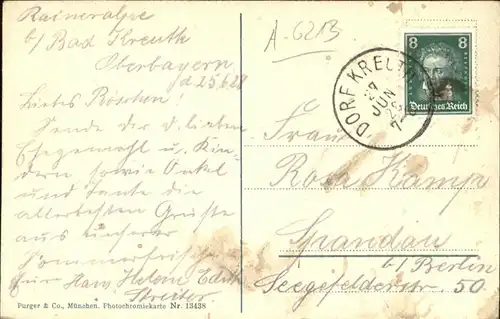 Raineralpe
b/ Bad Kreuth
Oberbayern
d. 25.6.28
Liebes Röschen!
Sende Dir d. lieben
Ehegemahl u. Kin-
dern sowie Onkel
und Tante die
allerbesten Grüße
aus unserer
Sommerfrische
Hans Helene Edith
Streiter
Purger & Co., München. Photochromiekarte Nr. 13438
A-6213
8 8
Deutsches Reich
DORF KREUTH
27
JUN
28
7
Frau
Rosa Kamp
Spandau
b/ Berlin
Seegefelderstr. 50